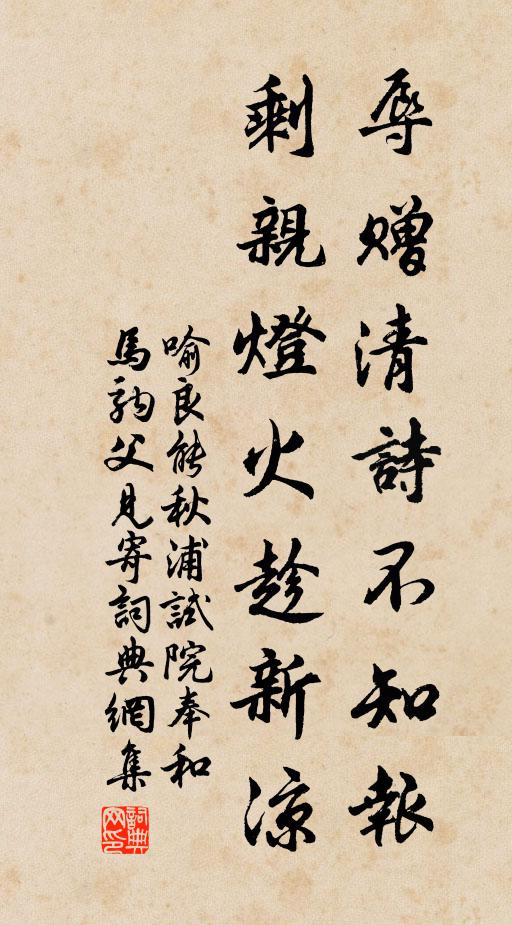 辱贈清詩不知報
剩親燈火趁新涼
喻良能秋浦試院奉和
馬駒父見寄詞典網集
詞典网印